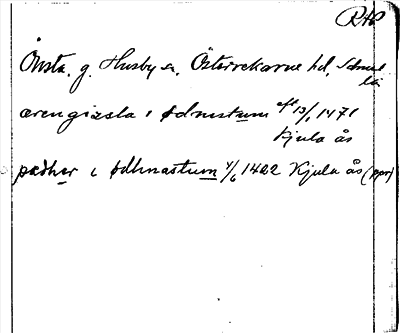 RAP
Önsta. g. Husby sn, Österrekarne hd, Södml
län
ærengizsla i ødnustum aft 13/1 1471
Kjula ås
pædher i ødhnastum 4/6 1422 Kjula ås (ppr)